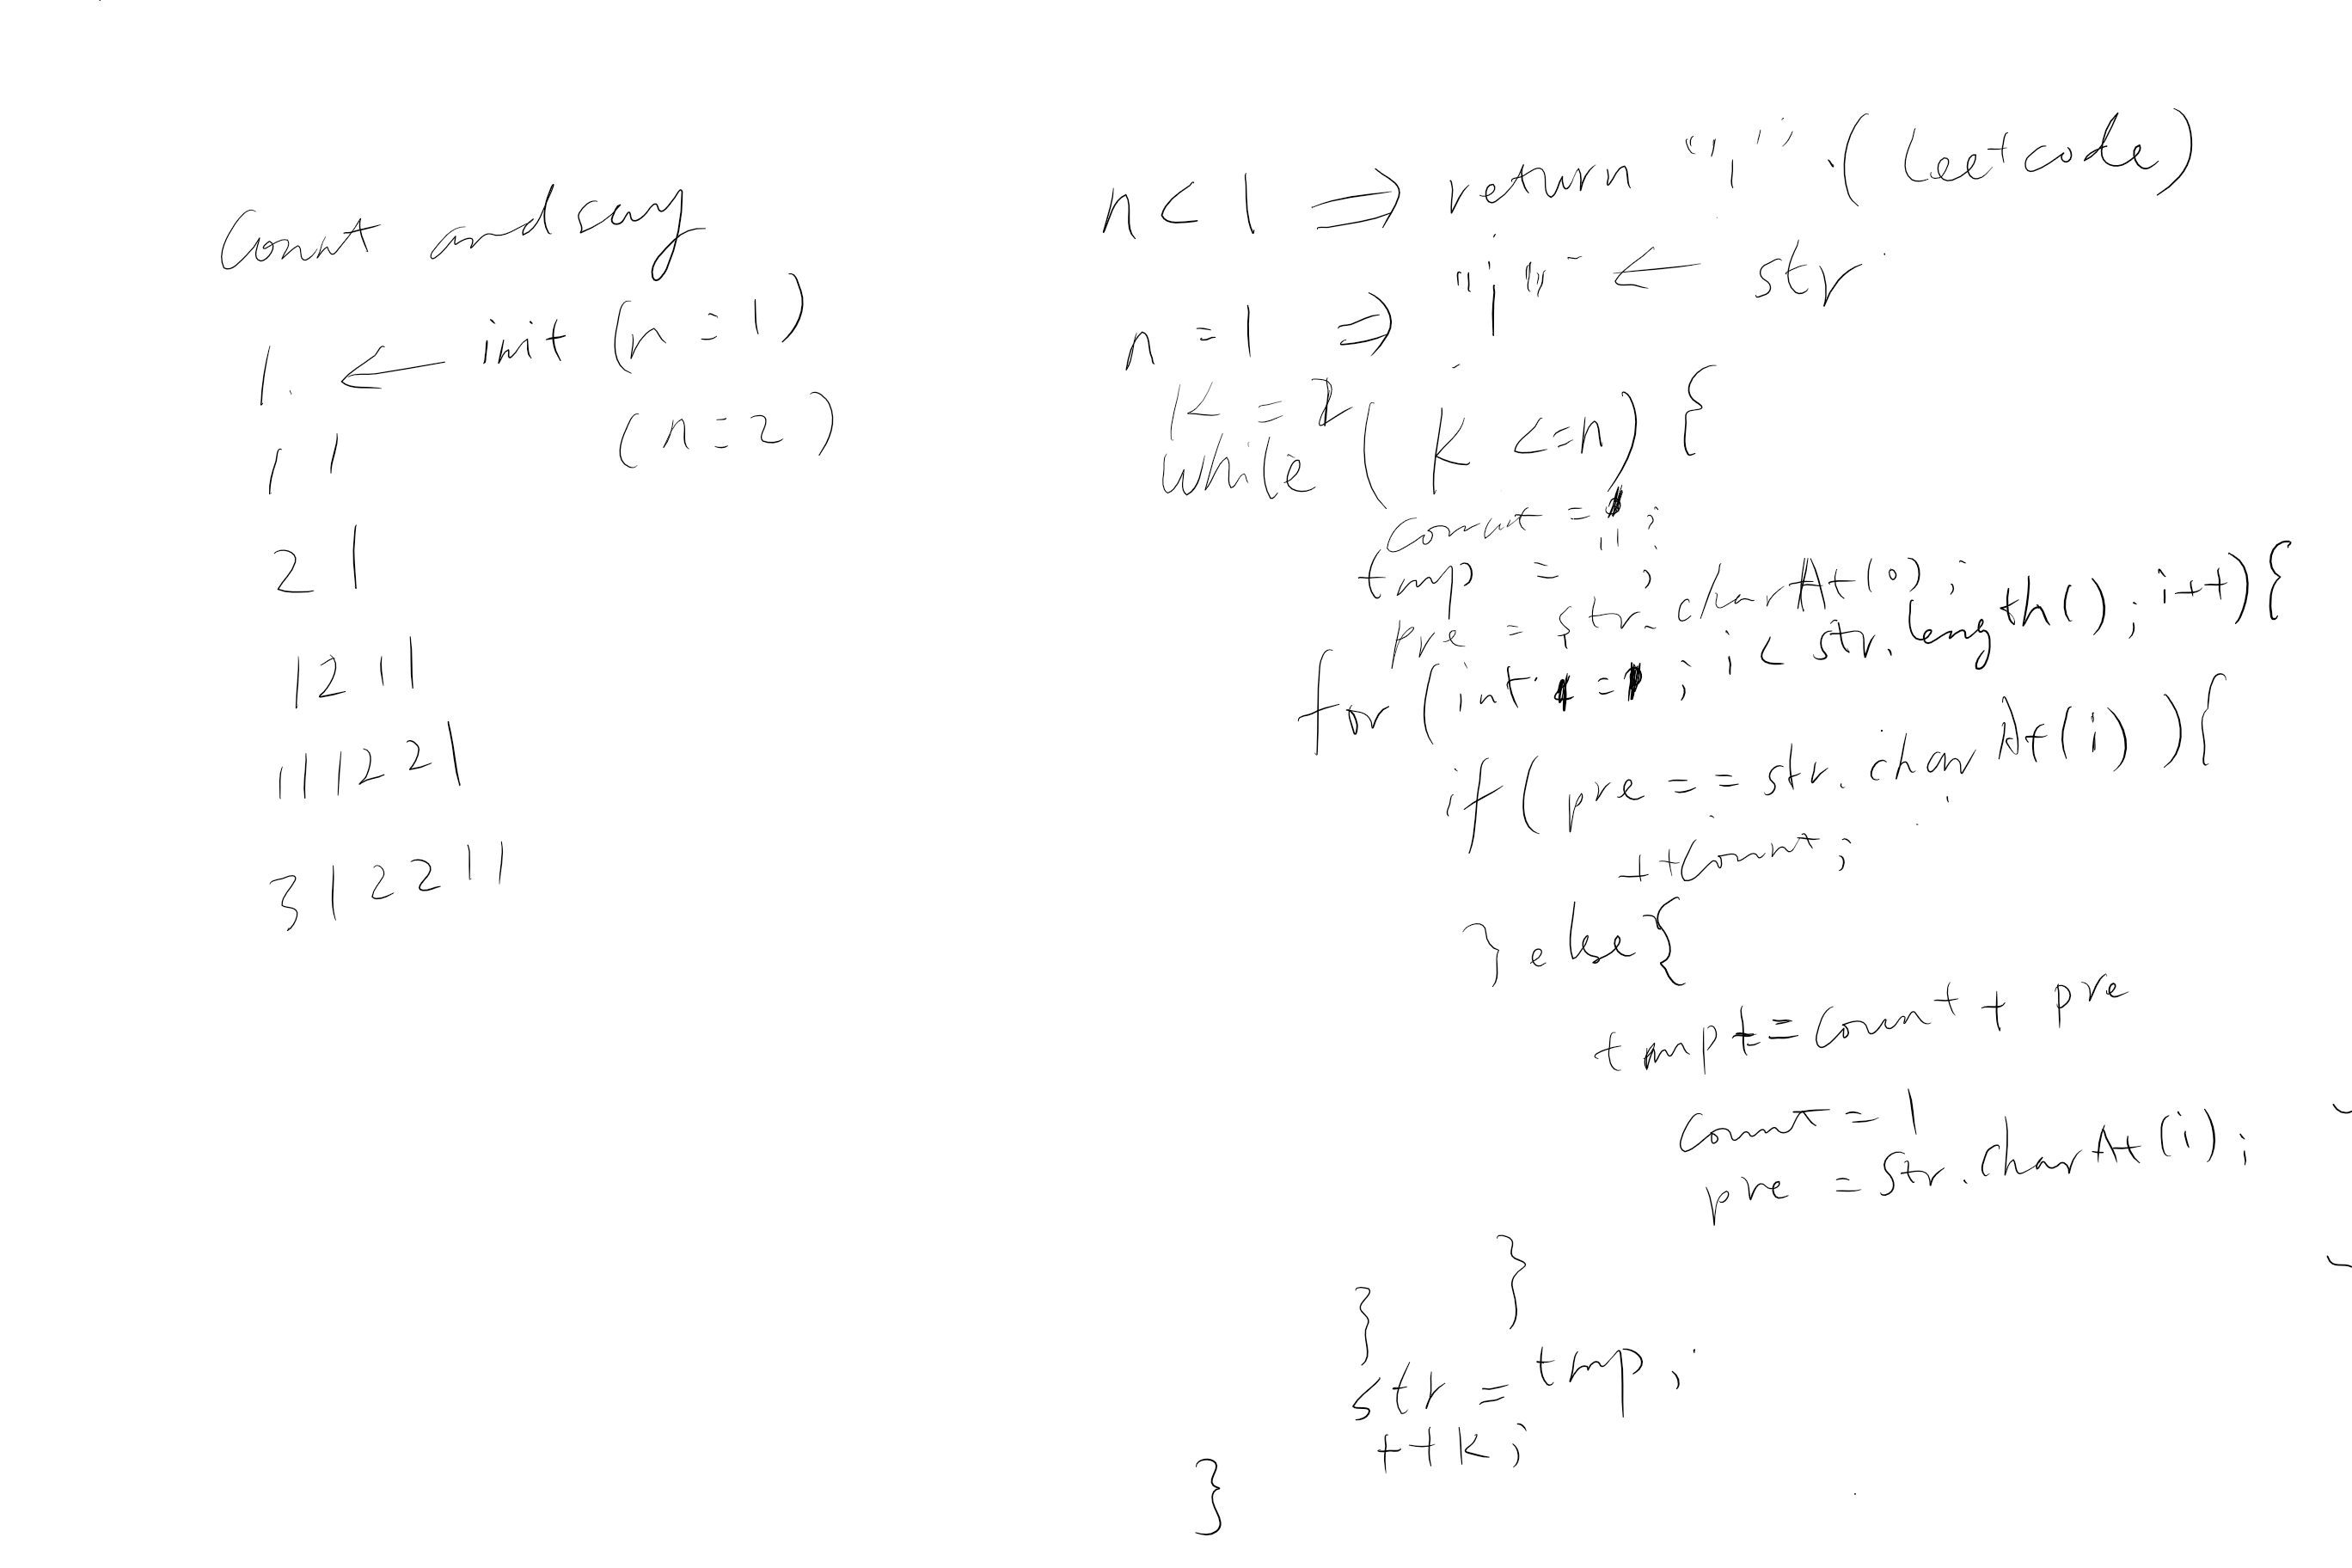 Count and say
1. ← init (n = 1)
1 1 (n = 2)
2 1
1 2 1 1
1 1 1 2 2 1
3 1 2 2 1 1
n < 1 ⇒ return "1" . (leetcode)
n = 1 ⇒ "1" ← str
k = 2
while ( k <= n) {
count = ;
tmp = "";
pre = str.charAt(0);
for (int = ; i < str.length(); i++){
if (pre == str.charAt(i)){
++count;
} else {
tmp += count + pre
count = 1
pre = str.charAt(i);
}
}
str = tmp;
++k;
}